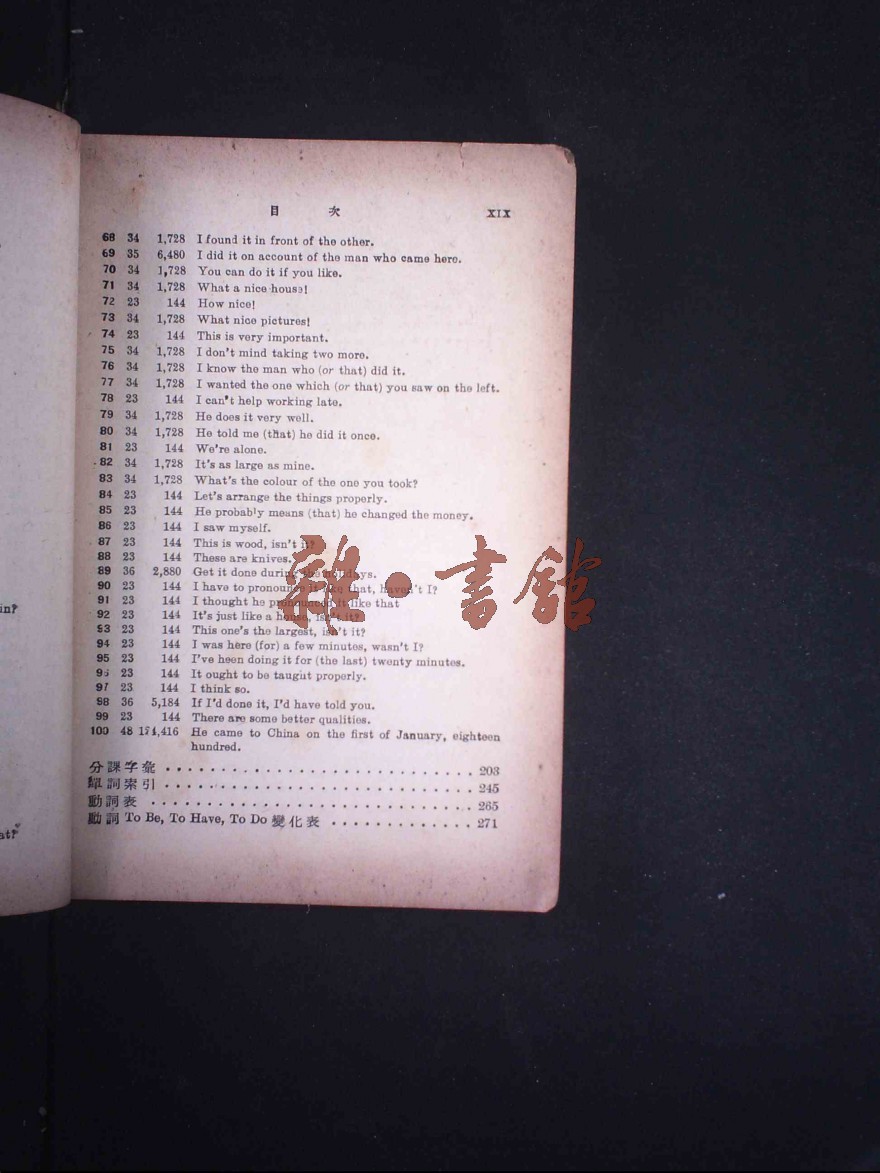 目 次 XIX
68 34 1,728 I found it in front of the other.
69 35 6,480 I did it on account of the man who came here.
70 34 1,728 You can do it if you like.
71 34 1,728 What a nice house!
72 23 144 How nice!
73 34 1,728 What nice pictures!
74 23 144 This is very important.
75 34 1,728 I don't mind taking two more.
76 34 1,728 I know the man who (or that) did it.
77 34 1,728 I wanted the one which (or that) you saw on the left.
78 23 144 I can't help working late.
79 34 1,728 He does it very well.
80 34 1,728 He told me (that) he did it once.
81 23 144 We're alone.
82 34 1,728 It's as large as mine.
83 34 1,728 What's the colour of the one you took?
84 23 144 Let's arrange the things properly.
85 23 144 He probably means (that) he changed the money.
86 23 144 I saw myself.
87 23 144 This is wood, isn't it?
88 23 144 These are knives.
89 36 2,880 Get it done during the holidays.
90 23 144 I have to pronounce it like that, haven't I?
91 23 144 I thought he pronounced it like that
92 23 144 It's just like a house, isn't it?
93 23 144 This one's the largest, isn't it?
94 23 144 I was here (for) a few minutes, wasn't I?
95 23 144 I've been doing it for (the last) twenty minutes.
96 23 144 It ought to be taught properly.
97 23 144 I think so.
98 36 5,184 If I'd done it, I'd have told you.
99 23 144 There are some better qualities.
100 48 He came to China on the first of January, eighteen
hundred.
分課字彙 203
單詞索引 245
動詞表 265
動詞 To Be, To Have, To Do 變化表 271
in?
at?
雜·書館